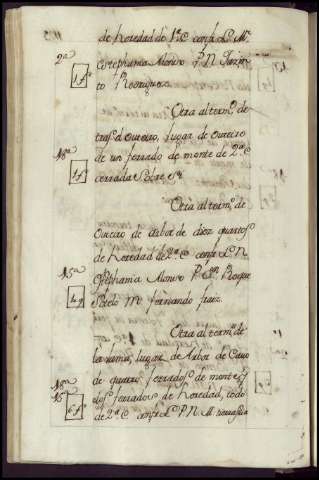 de heredad de 1ª C confª L. Mª
2ª Estephania Alonso P. N Jazin
1 fº to Rodriguez
Otra al termº de
tras d oureiro, lugar de oureiro
18ª de un ferrado de monte de 2ª C
1 fº cerrada sobre sy
Otra al termº de
Oureiro de Arbor de diez quartos
de heredad de 2ª C confª L. N
15ª Estephania Alonso P. Sn Roque
Sotelo M fernando
Otra al termº de
lugar de Arbor de
18ª de quatro ferrados de monte y
15ª dos ferrados de heredad, todo
6 fº de 2ª C confª L. P. N M.